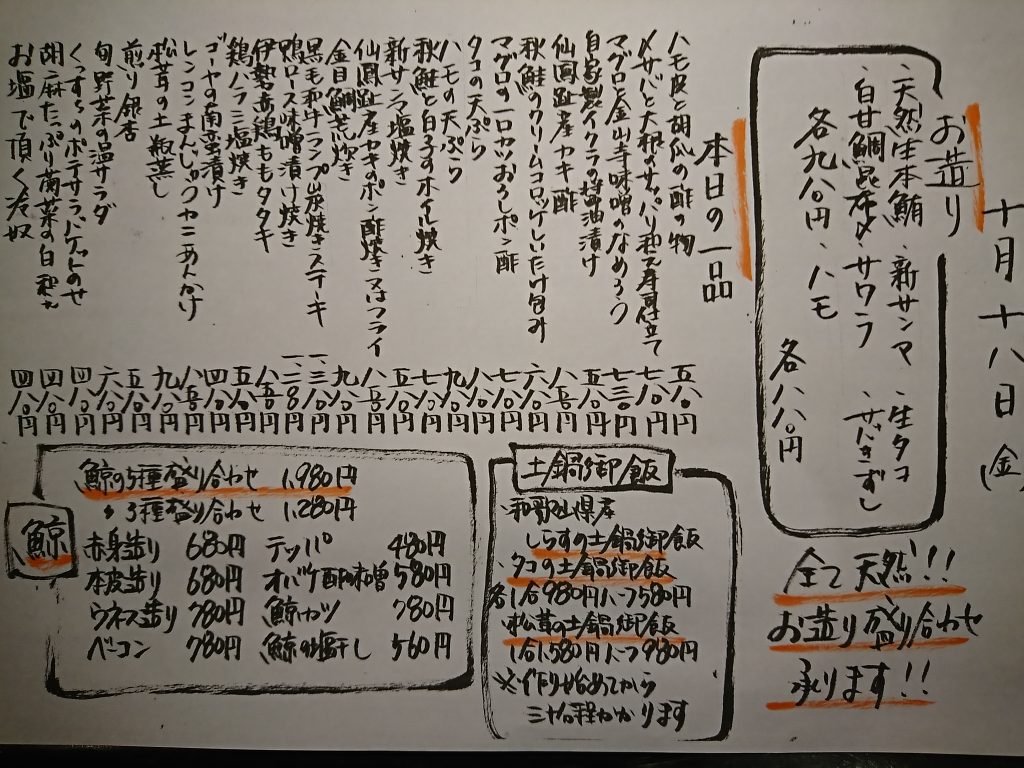 十月十八日(金)
お造り
・天然生本鮪・新サンマ・生タコ
・白甘鯛昆布〆・サワラ・サッときずし
各九八〇円・ハモ
各八八〇円
全て天然!!
お造り盛り合わせ
承ります!!
本日の一品
ハモ皮と胡瓜の酢の物 五八〇円
〆サバと大根のサッパリ和え寿司仕立て 七八〇円
マグロと金山寺味噌のなめろう 七三〇円
自家製イクラの醤油漬け 五八〇円
仙鳳趾産カキ酢 八五〇円
秋鮭のクリームコロッケしいたけ包み 六八〇円
マグロの一口カツおろしポン酢 七八〇円
タコの天ぷら 七八〇円
ハモの天ぷら 九八〇円
秋鮭と白子のホイル焼き 七八〇円
新サンマ塩焼き 五八〇円
仙鳳趾産カキのポン酢焼き又はフライ 八五〇円
金目鯛荒炊き 九八〇円
黒毛和牛ランプ炭焼きステーキ 一、三八〇円
鴨ロース味噌漬け焼き 一、二八〇円
伊勢赤鶏ももタタキ 八五〇円
鶏ハラミ塩焼き 五八〇円
ゴーヤの南蛮漬け 四八〇円
レンコンまんじゅうカニあんかけ 八五〇円
松茸の土瓶蒸し 九八〇円
煎り銀杏 五八〇円
旬野菜の温サラダ 六八〇円
ポテサラバケットのせ 四八〇円
胡麻たっぷり菊菜の白和え 四八〇円
お塩で頂く冷奴 四八〇円
土鍋御飯
・和歌山県産
しらすの土鍋御飯
・タコの土鍋御飯
各1合980円ハーフ580円
・松茸の土鍋御飯
1合1,580円ハーフ980円
※作り始めてから
三十分程かかります
鯨
鯨の5種盛り合わせ 1,980円
〃 3種盛り合わせ 1,280円
赤身造り 680円 テッパ 480円
本皮造り 680円 オバケ酢味噌 580円
ウネス造り 780円 鯨カツ 780円
ベーコン 780円 鯨の塩干し 560円